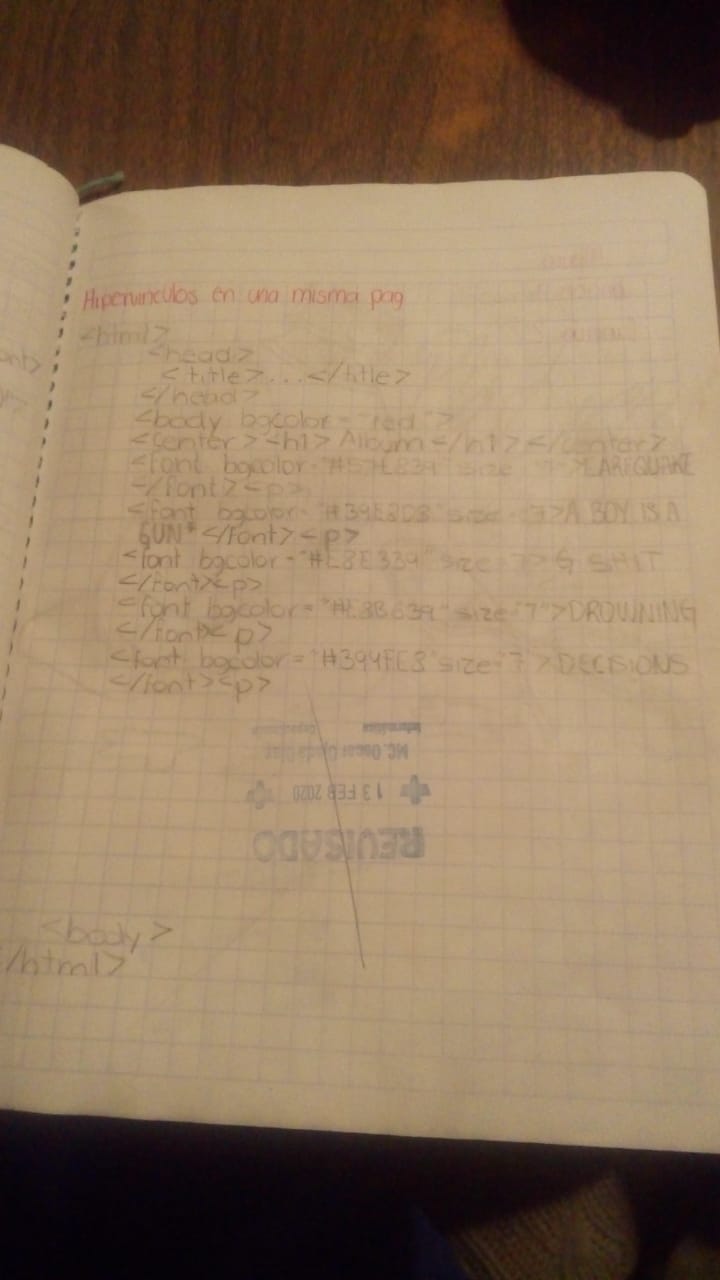 Hipervinculos en una misma pag
<html>
<head>
<title>...</title>
</head>
<body bgcolor="red">
<center><h1>Album</h1></center>
<font bgcolor="#57E839" size="7">EARFQUAKE
</font><p>
<font bgcolor="#39E8D8" size="7">A BOY IS A
GUN*</font><p>
<font bgcolor="#E8E339" size="7">G SHIT
</font><p>
<font bgcolor="#E8B639" size="7">DROWNING
</font><p>
<font bgcolor="#394FE8" size="7">DECISIONS
</font><p>
MC. Oscar Ojeda Diaz
13 FEB 2020
REVISADO
<body>
</html>